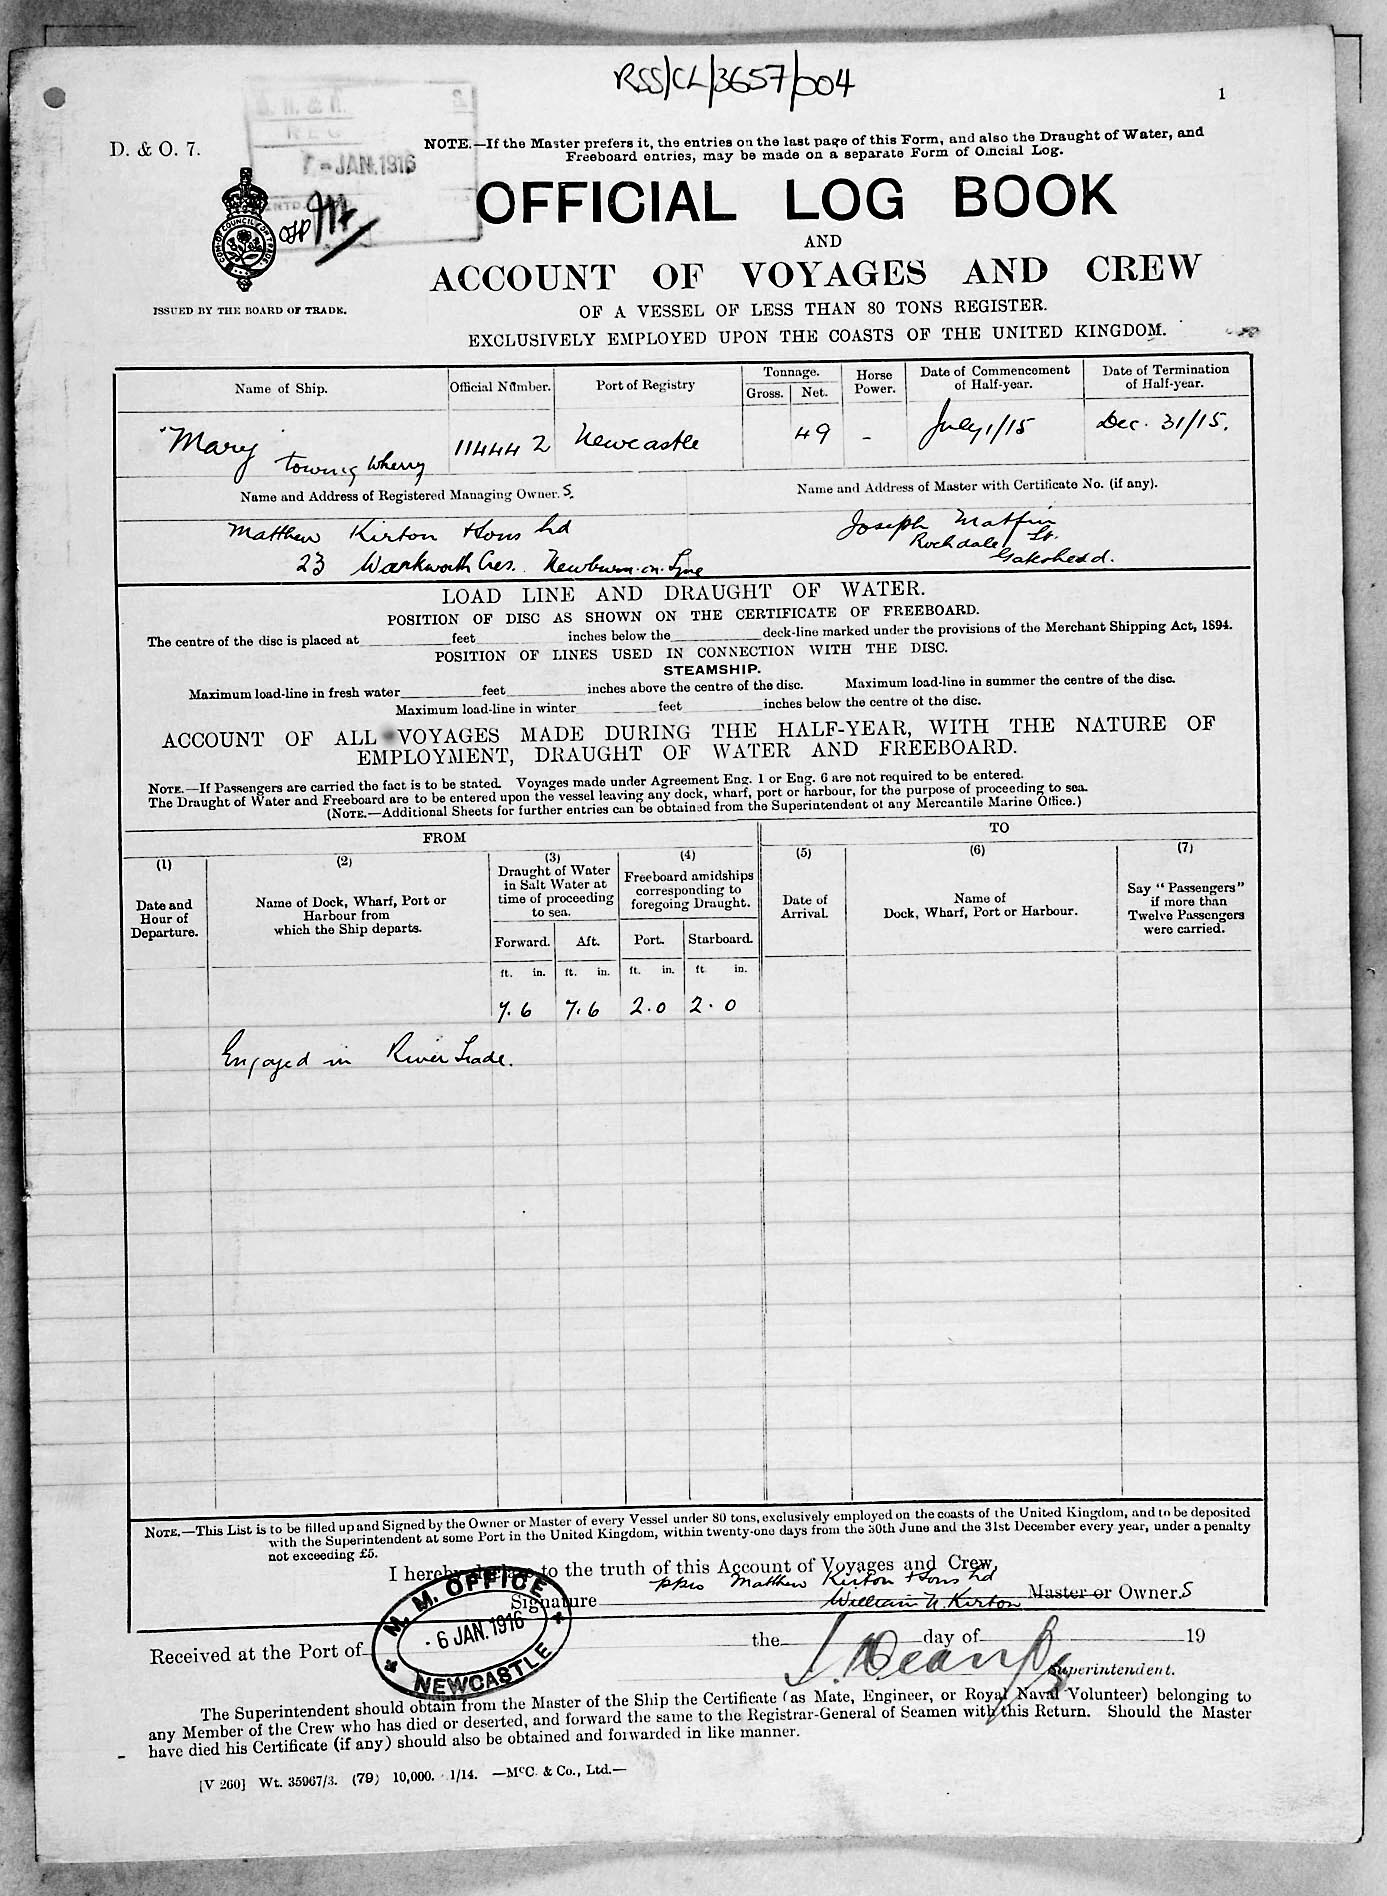 RSS/CL/3657/004
1
D. & O. 7.
REC
7-JAN.1916
NOTE.—If the Master prefers it, the entries on the last page of this Form, and also the Draught of Water, and
Freeboard entries, may be made on a separate Form of Official Log.
OFFICIAL LOG BOOK
AND
ACCOUNT OF VOYAGES AND CREW
ISSUED BY THE BOARD OF TRADE.
OF A VESSEL OF LESS THAN 80 TONS REGISTER.
EXCLUSIVELY EMPLOYED UPON THE COASTS OF THE UNITED KINGDOM.
Name of Ship. Official Number. Port of Registry Tonnage. Gross. Net. Horse Power. Date of Commencement of Half-year. Date of Termination of Half-year.
"Mary" towing wherry 114442 Newcastle 49 - July 1/15 Dec. 31/15.
Name and Address of Registered Managing Owner.S. Name and Address of Master with Certificate No. (if any).
Matthew Kirton & Sons Ltd Joseph Matfin
23 Warkworth Cres. Newburn-on-Tyne Rochdale St. Gateshead.
LOAD LINE AND DRAUGHT OF WATER.
POSITION OF DISC AS SHOWN ON THE CERTIFICATE OF FREEBOARD.
The centre of the disc is placed at feet inches below the deck-line marked under the provisions of the Merchant Shipping Act, 1894.
POSITION OF LINES USED IN CONNECTION WITH THE DISC.
STEAMSHIP.
Maximum load-line in fresh water feet inches above the centre of the disc. Maximum load-line in summer the centre of the disc.
Maximum load-line in winter feet inches below the centre of the disc.
ACCOUNT OF ALL VOYAGES MADE DURING THE HALF-YEAR, WITH THE NATURE OF
EMPLOYMENT, DRAUGHT OF WATER AND FREEBOARD.
NOTE.—If Passengers are carried the fact is to be stated. Voyages made under Agreement Eng. 1 or Eng. 6 are not required to be entered.
The Draught of Water and Freeboard are to be entered upon the vessel leaving any dock, wharf, port or harbour, for the purpose of proceeding to sea.
(NOTE.—Additional Sheets for further entries can be obtained from the Superintendent of any Mercantile Marine Office.)
FROM TO
(1) (2) (3) (4) (5) (6) (7)
Date and Hour of Departure.
Name of Dock, Wharf, Port or Harbour from which the Ship departs.
Draught of Water in Salt Water at time of proceeding to sea.
Freeboard amidships corresponding to foregoing Draught.
Date of Arrival.
Name of Dock, Wharf, Port or Harbour.
Say "Passengers" if more than Twelve Passengers were carried.
Forward. Aft. Port. Starboard.
ft. in. ft. in. ft. in. ft in.
7.6 7.6 2.0 2.0
Engaged in River Trade.
NOTE.—This List is to be filled up and Signed by the Owner or Master of every Vessel under 80 tons, exclusively employed on the coasts of the United Kingdom, and to be deposited
with the Superintendent at some Port in the United Kingdom, within twenty-one days from the 30th June and the 31st December every year, under a penalty
not exceeding £5.
I hereby declare to the truth of this Account of Voyages and Crew,
ppro Matthew Kirton & Sons Ltd
Signature William N. Kirton Master or Owner.S
M. M. OFFICE
-6 JAN. 1916
NEWCASTLE
Received at the Port of the day of 19
Superintendent.
The Superintendent should obtain from the Master of the Ship the Certificate (as Mate, Engineer, or Royal Naval Volunteer) belonging to
any Member of the Crew who has died or deserted, and forward the same to the Registrar-General of Seamen with this Return. Should the Master
have died his Certificate (if any) should also be obtained and forwarded in like manner.
[V 260] Wt. 35967/3. (79) 10,000. 1/14. —McC. & Co., Ltd.—